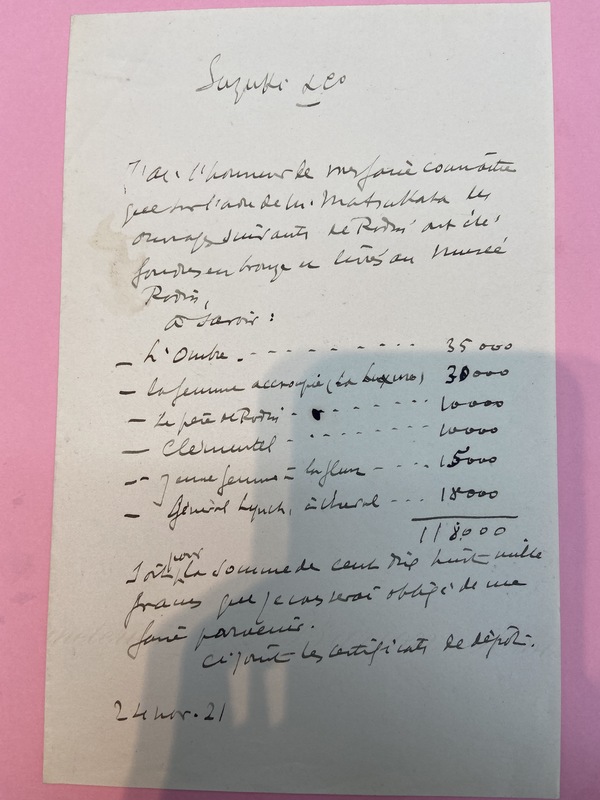 Suzuki & Co
J'ai l'honneur de vous faire connaître
que sur l'avis de M. Matsukata les
ouvrages suivants de Rodin ont été
fondus en bronze et livrés au Musée
Rodin,
à savoir :
— L'Ombre. - - - - - - - - 35000
— La femme accroupie (La Luxure) 30000
— Le père de Rodin - - - - - - 10000
— Clémentel - - - - - - - 10000
— Jeune femme à la fleur - - - - 15000
— Général Lynch, à cheval - - - 18000
118000
Soit pour la somme de cent dix huit mille
francs que je vous serai obligé de me
faire parvenir.
Ci joint les certificats de dépôt.
24 nov. 21